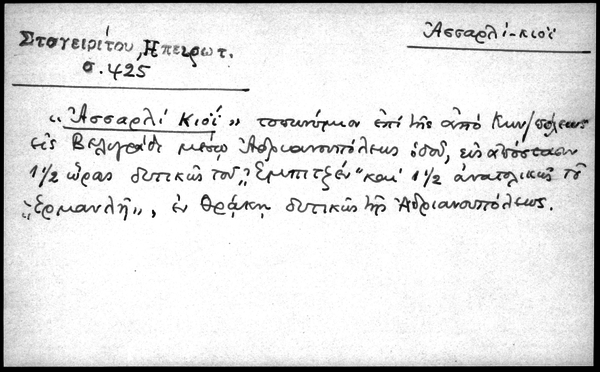 Ἀσσαρλί-κιοϊ
Σταγειρίτου, Ηπειρωτ.
σ. 425
"Ἀσσαρλί Κιοϊ" τοπωνύμιον ἐπί τῆς ἀπό Κων/πόλεως
εἰς Βελιγράδι μέσῳ Ἀδριανουπόλεως ὁδοῦ, εἰς ἀπόστασιν
1 1/2 ὥρας δυτικῶς τοῦ "Ἐμπιτζέν" καί 1 1/2 ἀνατολικῶς τοῦ
"Ἑρμανλῆ", ἐν Θράκῃ δυτικῶς τῆς Ἀδριανουπόλεως.